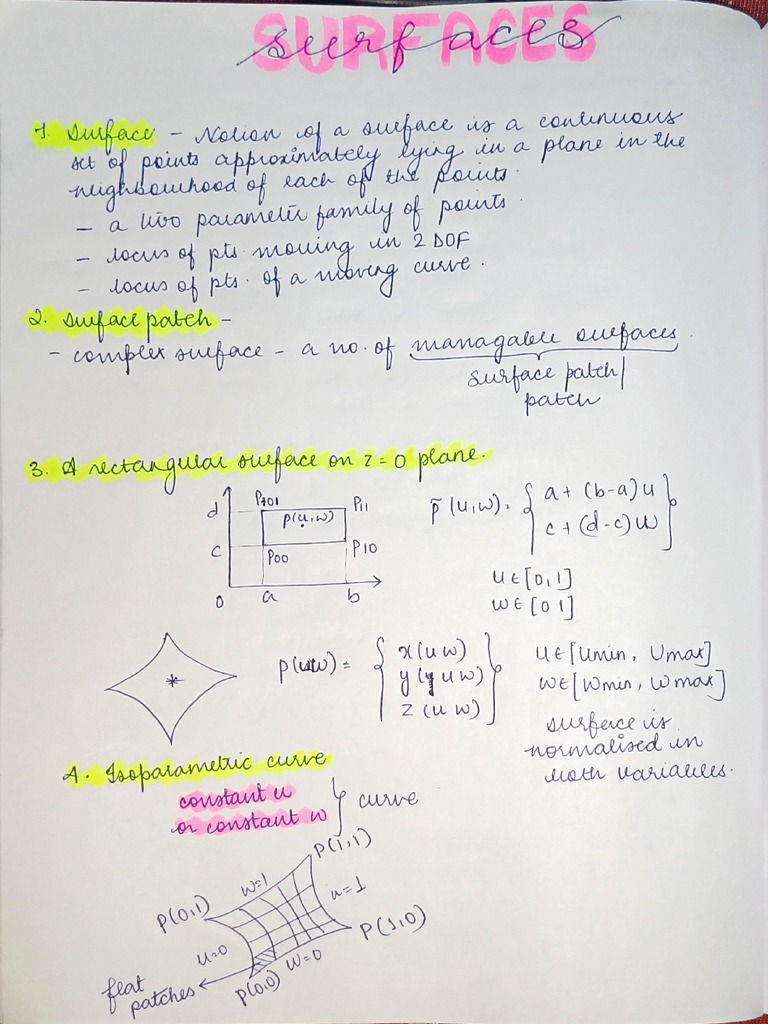 SURFACES
surfaces
1. Surface - Notion of a surface is a continuous
set of points approximately lying in a plane in the
neighbourhood of each of the points.
- a two parameter family of points.
- locus of pts moving in 2 DOF
- locus of pts. of a moving curve.
2. Surface patch -
- complex surface - a no. of managable surfaces.
surface patch/
patch
3. A rectangular surface on z=0 plane.
d P01 P11
P(u,w)
c P00 P10
0 a b
p̄(u,w) = { a + (b-a)u
c + (d-c)w }
u ∈ [0,1]
w ∈ [0 1]
p(uw) = { x(u w)
y(u w)
z(u w) }
u ∈ [Umin, Umax]
w ∈ [Wmin, Wmax]
surface is
normalised in
both variables.
4. Isoparametric curve
constant u
or constant w } curve
P(1,1)
w=1
P(0,1)
u=1
u=0
P(1,0)
w=0
P(0,0)
flat
patches